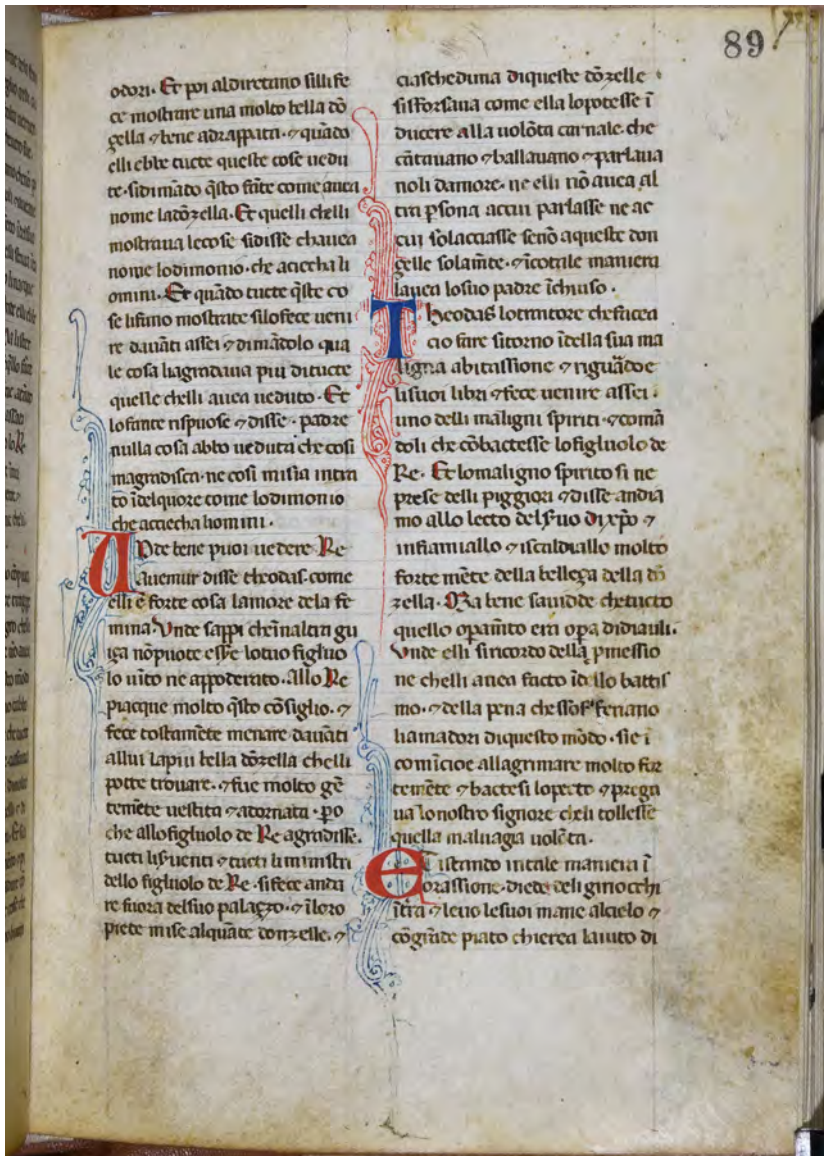 89
odori. Et poi aldiretano silli fe
ce mostrare una molto bella dō
çella ⁊ bene adrappata. ⁊ quādo
elli ebbe tucte queste cose uedu
te. sidimādo q̄sto fāte come auea
nome ladōzella. Et quelli chelli
mostraua lecose sidisse chauea
nome lodimonio. che aciecha li
omini. Et quādo tucte q̄ste co
se lifuno mostrate silofece ueni
re dauāti assei ⁊ dimādolo qua
le cosa liagradaua piu ditucte
quelle chelli auea ueduto. Et
lofante rispuose ⁊ disse. padre
nulla cosa abbo ueduta che cosi
magradisca. ne cosi misia intra
to īdelquore come lodimonio
che acciecha homini.
Unde bene puoi uedere Re
auemur disse theodas. come
elli ē forte cosa lamore dela fe
mina. Vnde sappi cheīnaltra gu
iça nōpuote esse lotuo figluo
lo uīto ne appoderato. Allo Re
piacque molto q̄sto cōsiglio. ⁊
fece tostamēte menare dauāti
allui lapiu bella dōzella chelli
potte trouare. ⁊ fue molto gē
temēte uestita ⁊ adornata. po
che allo figluolo de Re agradisse.
tucti lis uenti ⁊ tucti li ministri
dello figluolo de Re. sifece anda
re fuora delsuo palaçzo. ⁊ iloro
piete mise alquāte donzelle. ⁊
ciascheduna diqueste dōzelle
sisforsaua come ella lopotesse ī
ducere alla uolōta carnale. che
cātauano ⁊ ballauano ⁊ parlaua
noli damore. ne elli nō auea al
tra p̱sona accui parlasse ne ac
cui solacciasse senō aqueste don
çelle solam̄te. ⁊ icotale maniera
lauea losuo padre īchiuso.
Theodas lotraitore chefacea
cio fare sitorno īdella sua ma
ligna abitassione ⁊ riguādoe
lisuoi libri ⁊ fece uenire assei.
uno delli maligni spiriti. ⁊ comā
doli che cōbactesse lofigluolo de
Re. Et lomaligno spirito si ne
prese delli piggiori ⁊ disse andia
mo allo lecto delsuo di xp̄o ⁊
infiamiallo ⁊ iscaldiallo molto
forte mēte della belleça della dō
zella. Ma bene sauidde chetucto
quello opam̄to era opa didiauli.
Vnde elli siricordo della pmessio
ne chelli auea facto īdello battis
mo. ⁊ della pena chessofferano
liamadori diquesto mōdo. sie ī
comīcioe allagrimare molto for
temēte ⁊ bactesi lopecto ⁊ prega
ua lo nostro signore cheli tollesse
quella maluagia uolēta.
Et istando intale maniera ī
orassione. diede deli ginocchi
ītra ⁊ leuo lesuoi mane alcielo ⁊
cōgrāde piato chierea laiuto di